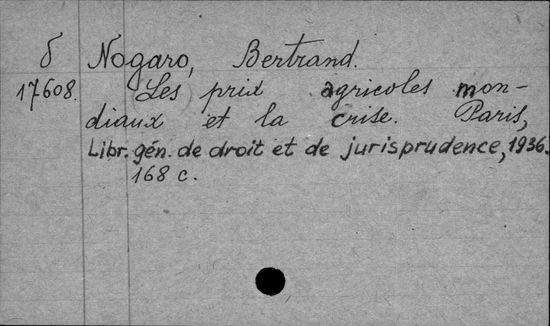 δ Nogaro, Bertrand.
17608. Les prix agricoles mon-
diaux et la crise. Paris,
Libr. gén. de droit et de jurisprudence, 1936.
168 c.